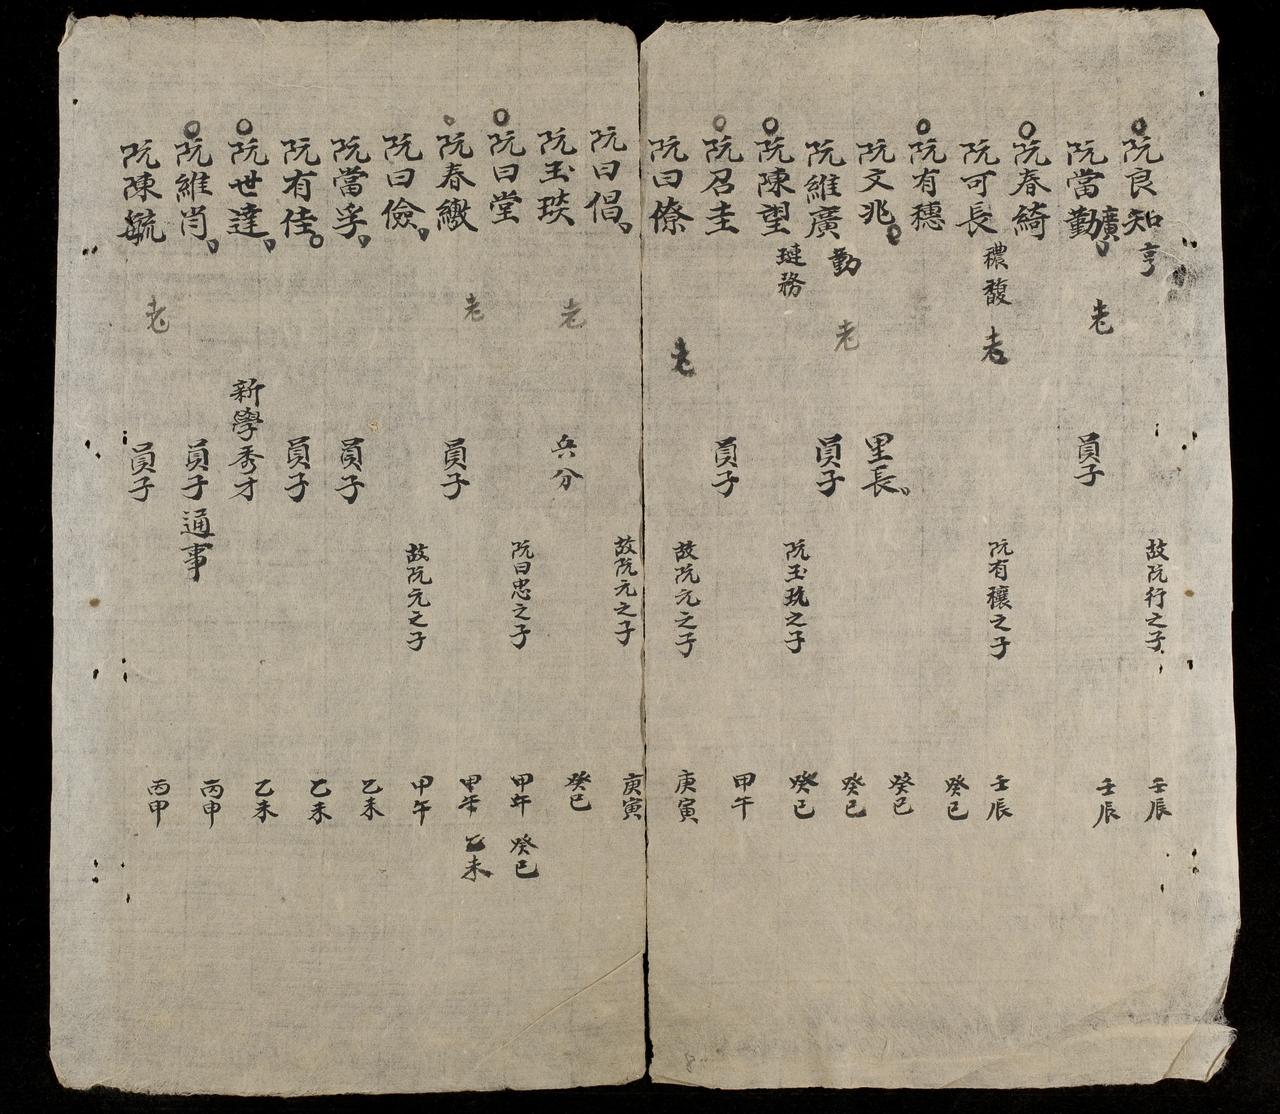 阮良知 亨 故阮行之子 壬辰
阮當勤 廣 老 員子 壬辰
阮春綺
阮可長 禯馥 老 阮有穰之子 壬辰
阮有穗 癸巳
阮文兆 里長 癸巳
阮維廣 勤 老 員子 癸巳
阮陳望 璉務 阮玉珫之子 癸巳
阮召圭 員子 甲午
阮曰僚 老 故阮元之子 庚寅
阮曰倡 故阮元之子 庚寅
阮玉琰 老 兵分 癸巳
阮曰堂 阮曰忠之子 甲午 癸巳
阮春繳 老 員子 甲午 乙未
阮曰儉 故阮元之子 甲午
阮當孚 員子 乙未
阮有佳 員子 乙未
阮世達 新學秀才 乙未
阮維肖 員子 通事 丙申
阮陳毓 老 員子 丙申